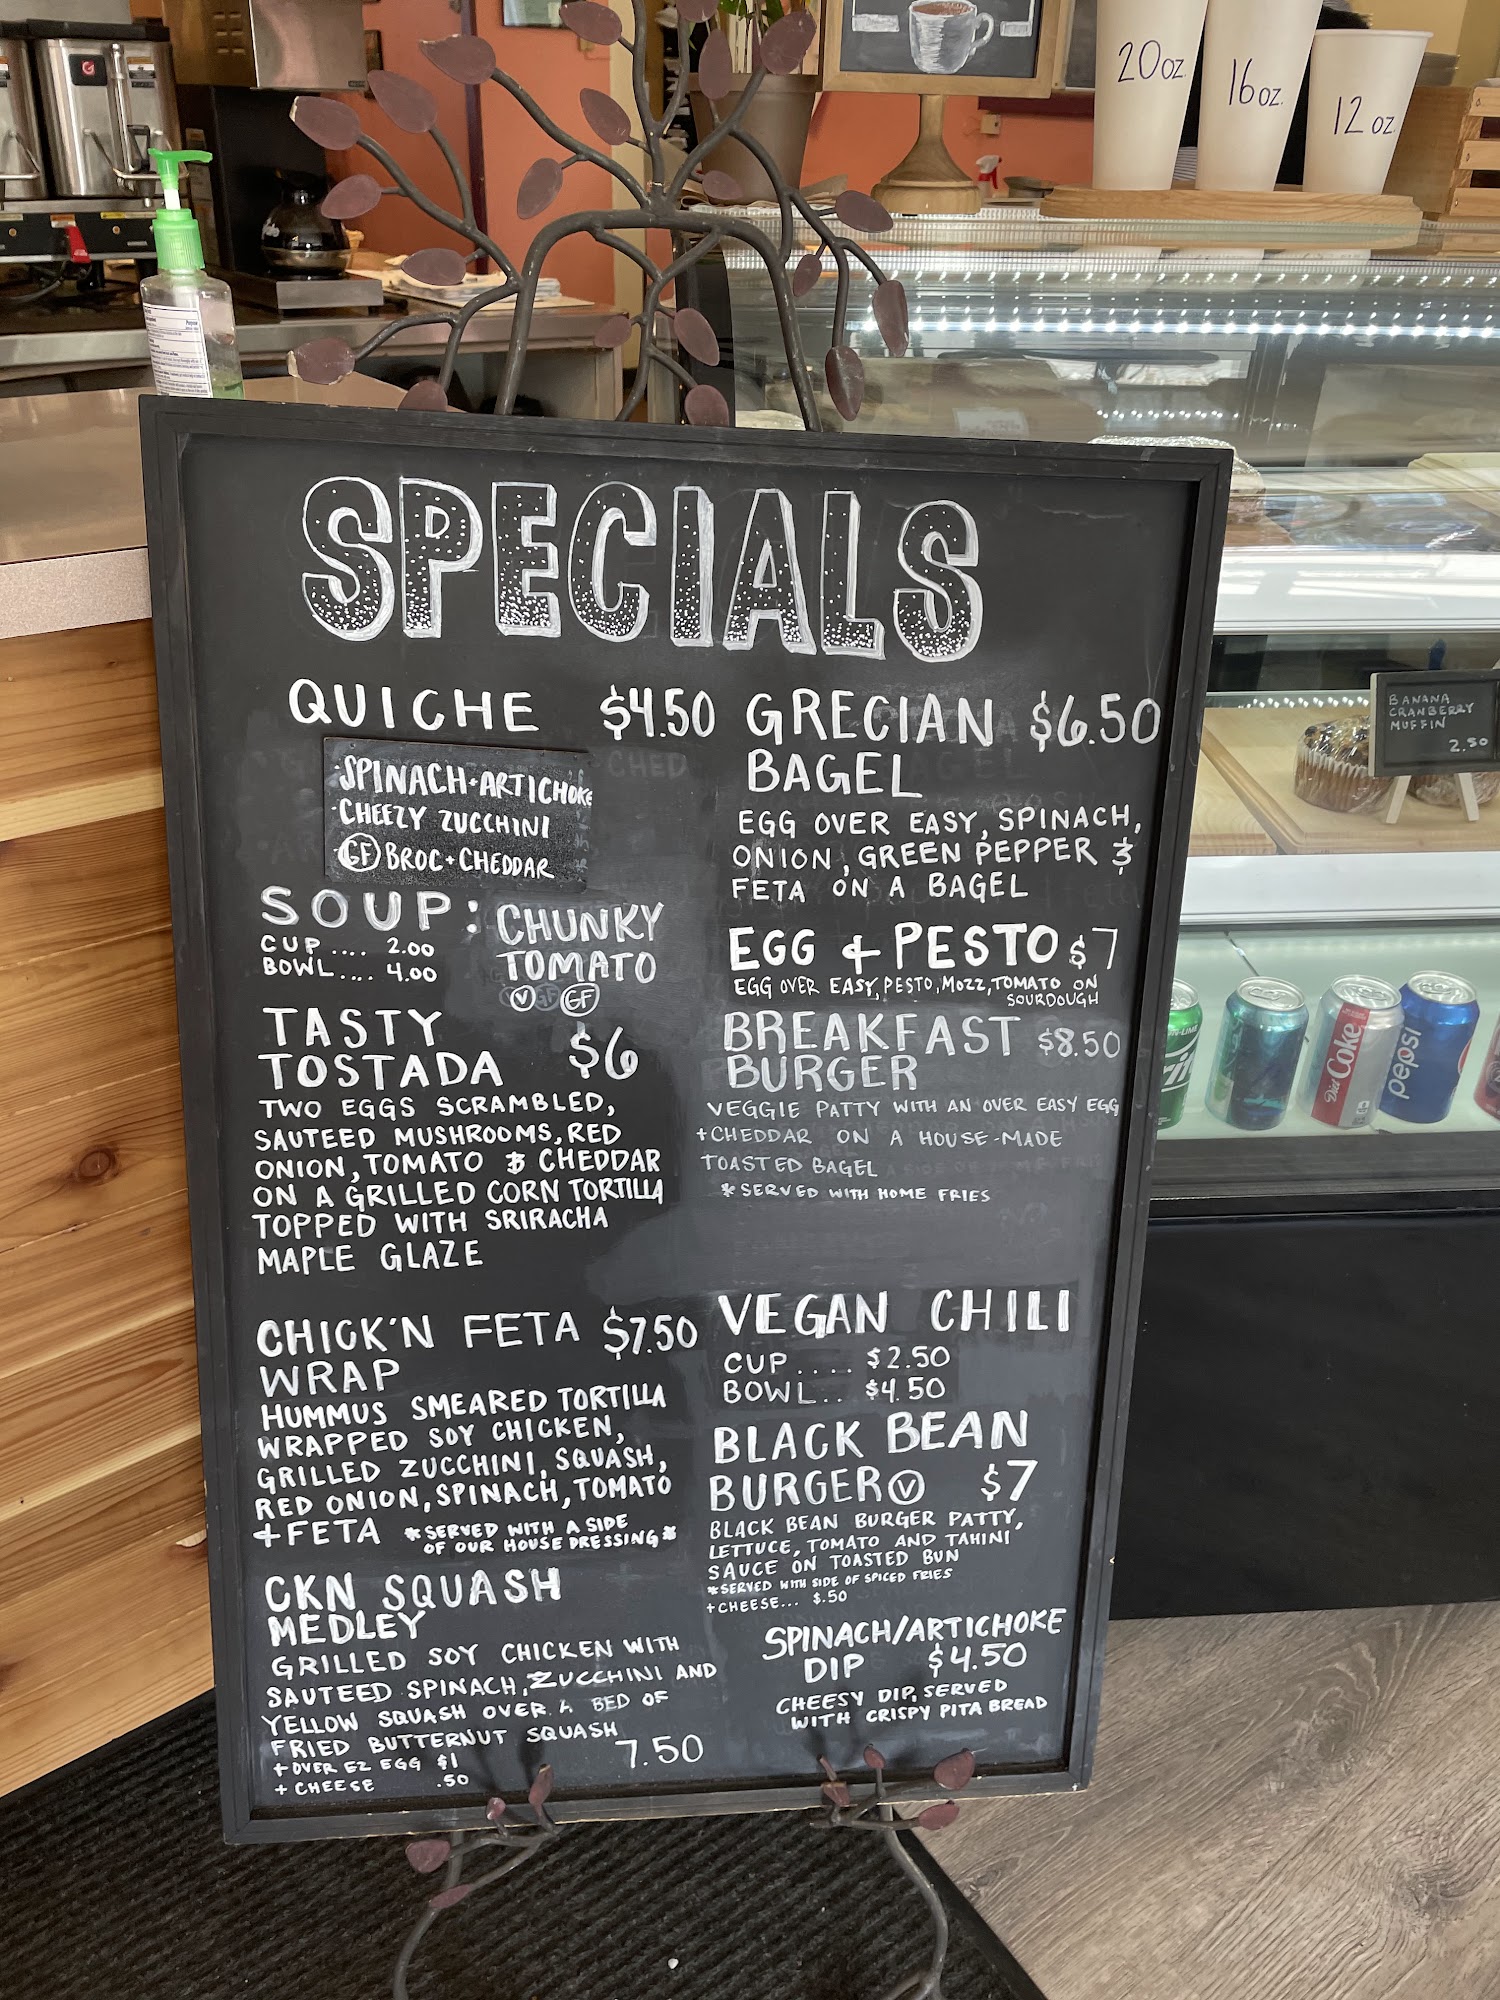 20 oz.
16 oz.
12 oz.
SPECIALS
QUICHE $4.50
·SPINACH+ARTICHOKE
·CHEEZY ZUCCHINI
·GF BROC+CHEDDAR
SOUP: CHUNKY
TOMATO
V GF
CUP.... 2.00
BOWL.... 4.00
TASTY
TOSTADA $6
TWO EGGS SCRAMBLED,
SAUTEED MUSHROOMS, RED
ONION, TOMATO & CHEDDAR
ON A GRILLED CORN TORTILLA
TOPPED WITH SRIRACHA
MAPLE GLAZE
CHICK'N FETA $7.50
WRAP
HUMMUS SMEARED TORTILLA
WRAPPED SOY CHICKEN,
GRILLED ZUCCHINI, SQUASH,
RED ONION, SPINACH, TOMATO
+ FETA *SERVED WITH A SIDE
OF OUR HOUSE DRESSING*
CKN SQUASH
MEDLEY
GRILLED SOY CHICKEN WITH
SAUTEED SPINACH, ZUCCHINI AND
YELLOW SQUASH OVER A BED OF
FRIED BUTTERNUT SQUASH
+ OVER EZ EGG $1
+ CHEESE .50
7.50
GRECIAN $6.50
BAGEL
EGG OVER EASY, SPINACH,
ONION, GREEN PEPPER &
FETA ON A BAGEL
EGG + PESTO $7
EGG OVER EASY, PESTO, MOZZ, TOMATO ON
SOURDOUGH
BREAKFAST $8.50
BURGER
VEGGIE PATTY WITH AN OVER EASY EGG
+CHEDDAR ON A HOUSE-MADE
TOASTED BAGEL
*SERVED WITH HOME FRIES
VEGAN CHILI
CUP.... $2.50
BOWL.. $4.50
BLACK BEAN
BURGER V $7
BLACK BEAN BURGER PATTY,
LETTUCE, TOMATO AND TAHINI
SAUCE ON TOASTED BUN
*SERVED WITH SIDE OF SPICED FRIES
+CHEESE... $.50
SPINACH/ARTICHOKE
DIP $4.50
CHEESY DIP, SERVED
WITH CRISPY PITA BREAD
BANANA
CRANBERRY
MUFFIN
2.50
Diet Coke
pepsi